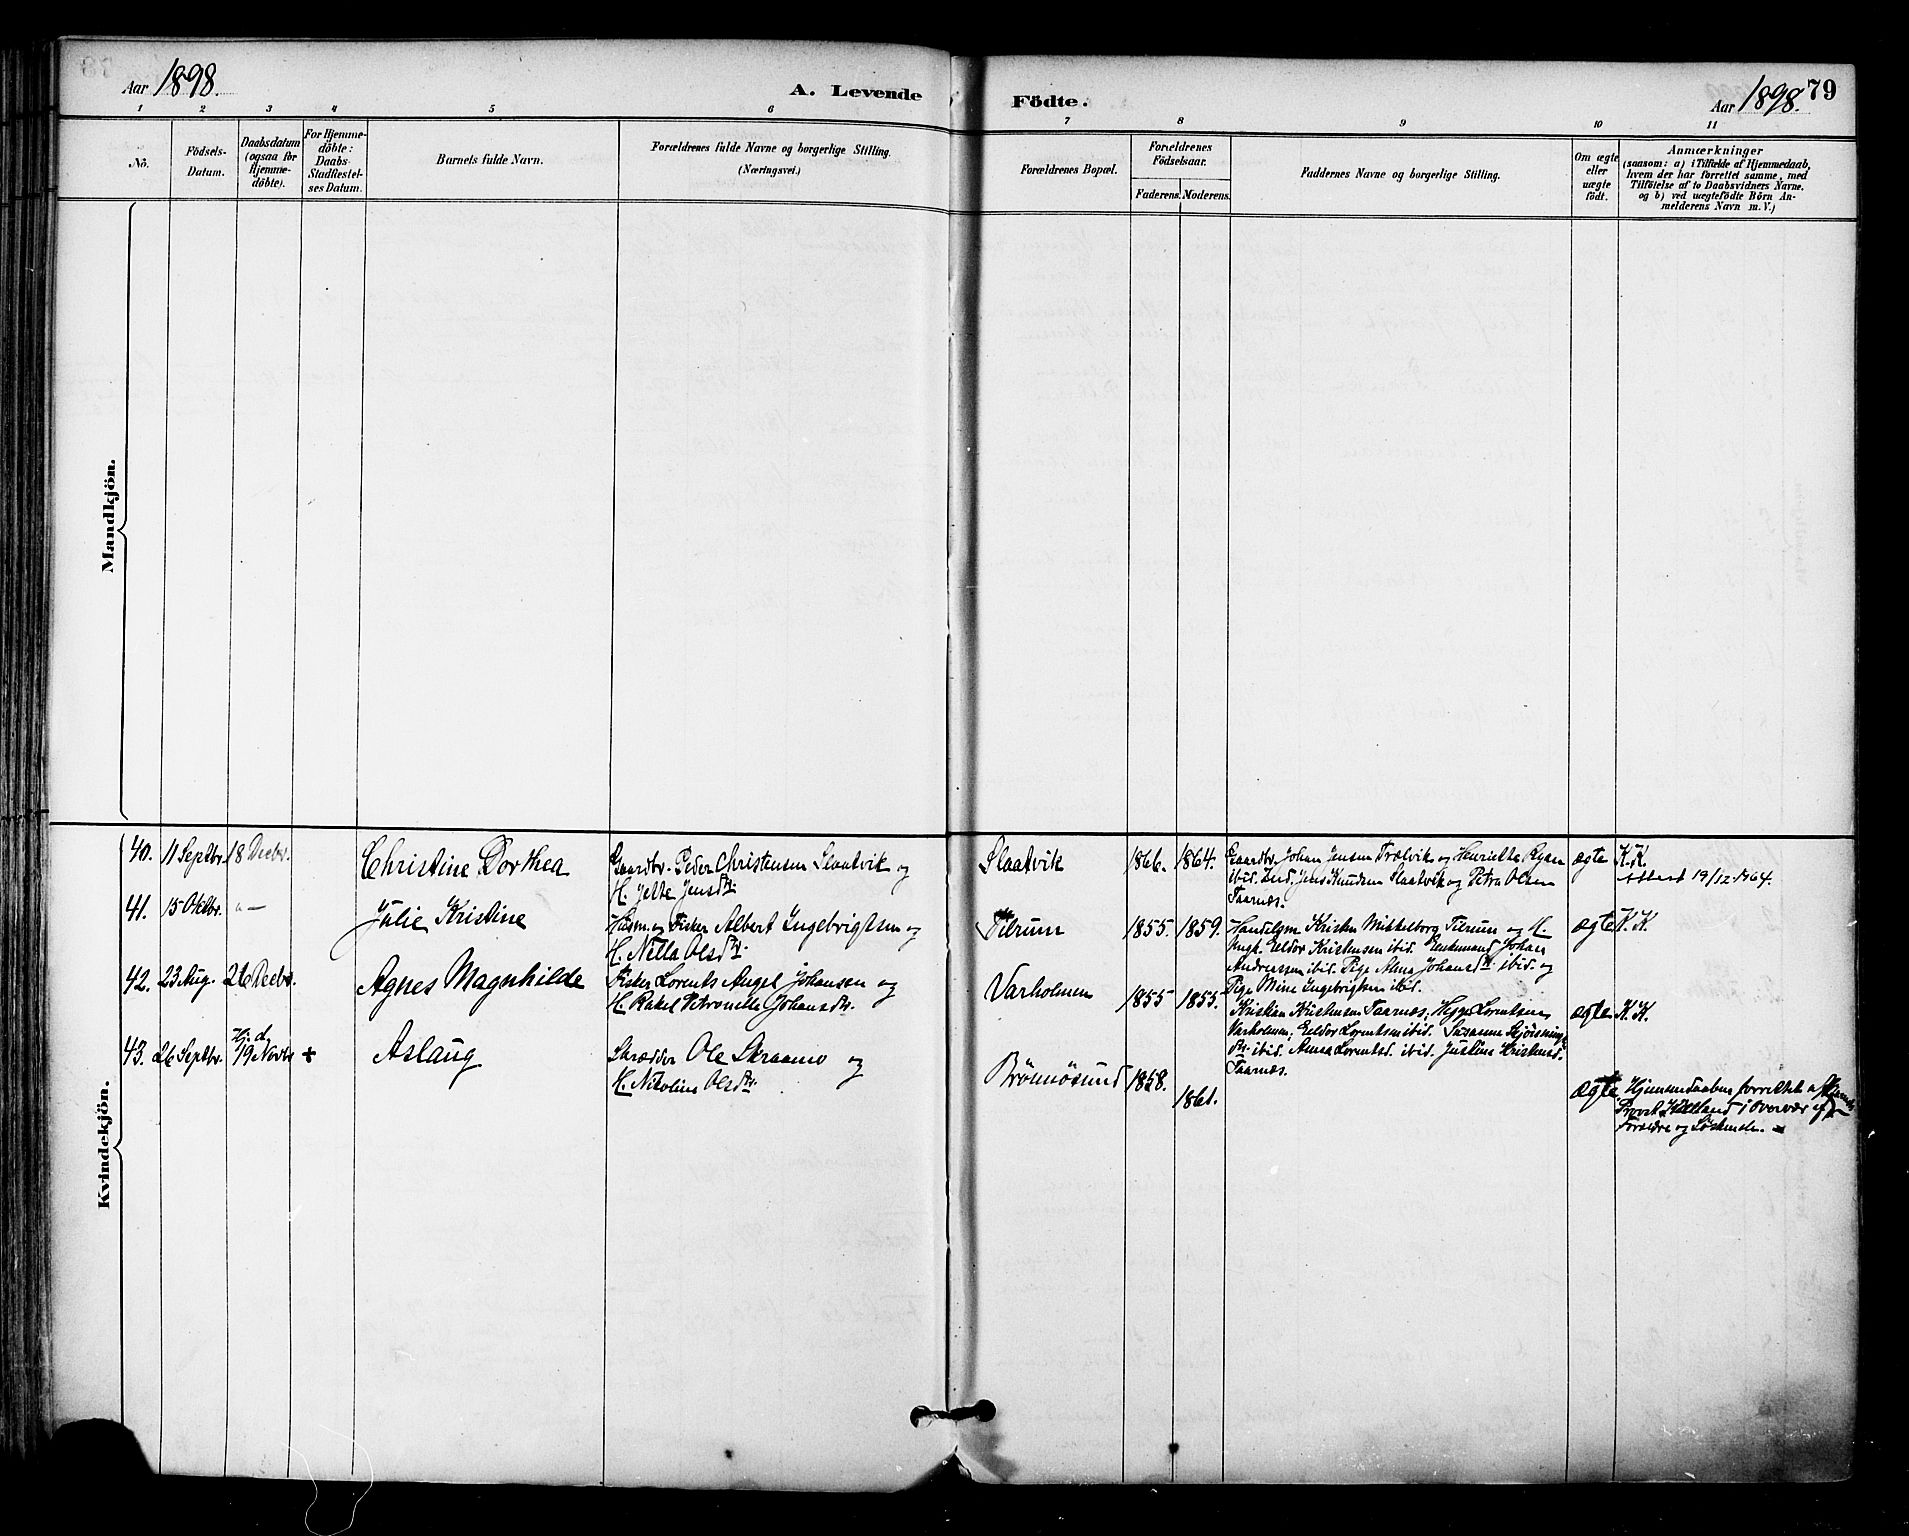 Aar 1898.
A. Levende Födte.
Aar 1898. 79
1 2 3 4 5 6 7 8 9 10 11
No.
Födsels-
Datum.
Daabsdatum
(ogsaa for
Hjemme-
döbte).
For Hjemme-
döbte:
Daabs-
Stadfæstel-
ses Datum.
Barnets fulde Navn.
Forældrenes fulde Navne og borgerlige Stilling.
(Næringsvei.)
Forældrenes Bopæl.
Forældrenes
Födselsaar.
Faderens. Moderens.
Faddernes Navne og borgerlige Stilling.
Om ægte
eller
uægte
födt.
Anmærkninger
(saasom: a) i Tilfælde af Hjemmedaab,
hvem der har forrettet samme, med
Tilföielse af to Daabsvidners Navne,
og b) ved uægtefödte Börn An-
melderens Navn m.V.)
Mandkjön.
Kvindekjön.
40. 11 Septbr. 18 Decbr.
Christine Dorthea
Gaardbr. Peder Christensen Slaatvik og
H. Jette Jensdtr.
Slaatvik
1866. 1864.
Gaardbr. Johan Jensen Trælvik og Henriette
ibid. Jens Knudsen Slaatvik og Petra Olsen
Taarnæs.
ægte
K.K.
Attest 19/12-1964.
41. 15 Oktbr. "—
Julie Kristine
Husm. og Fisker Albert Ingebrigtsen og
H. Nella Olsdtr.
Tilrum
1855. 1859.
Handelsm Kristen Mikkelborg Tilrum og H.
Ungk. Eeldor Kristensen ibid. Enkemand Johan
Andreassen ibid. Pige Alma Johansdtr. ibid. og
Pige Mine Ingebrigtsen ibid.
ægte
K.K.
42. 23 Aug. 26 Decbr.
Agnes Magnhilde
Fisker Lorents Angel Johansen og
H. Rakel Petronella Johansdtr.
Varholmen
1855 1855.
Kristian Kristensen Taarnæs; Lorentsen
Varholmen; Eeldor Lorentsen ibid. Susanne
dtr. ibid. Anna Lorentsd. ibid. Justine Kristensd.
Taarnæs.
ægte
K.K.
43. 26 Septbr. Hj. d. 19 Novbr +
Aslaug
Skrædder Ole Skraamo og
H. Nikoline Olsdtr.
Brönnösund
1858.
1861.
ægte
Hjemmedaaben forrettet af
Provst i Overvær af
Forældre og Söskende.